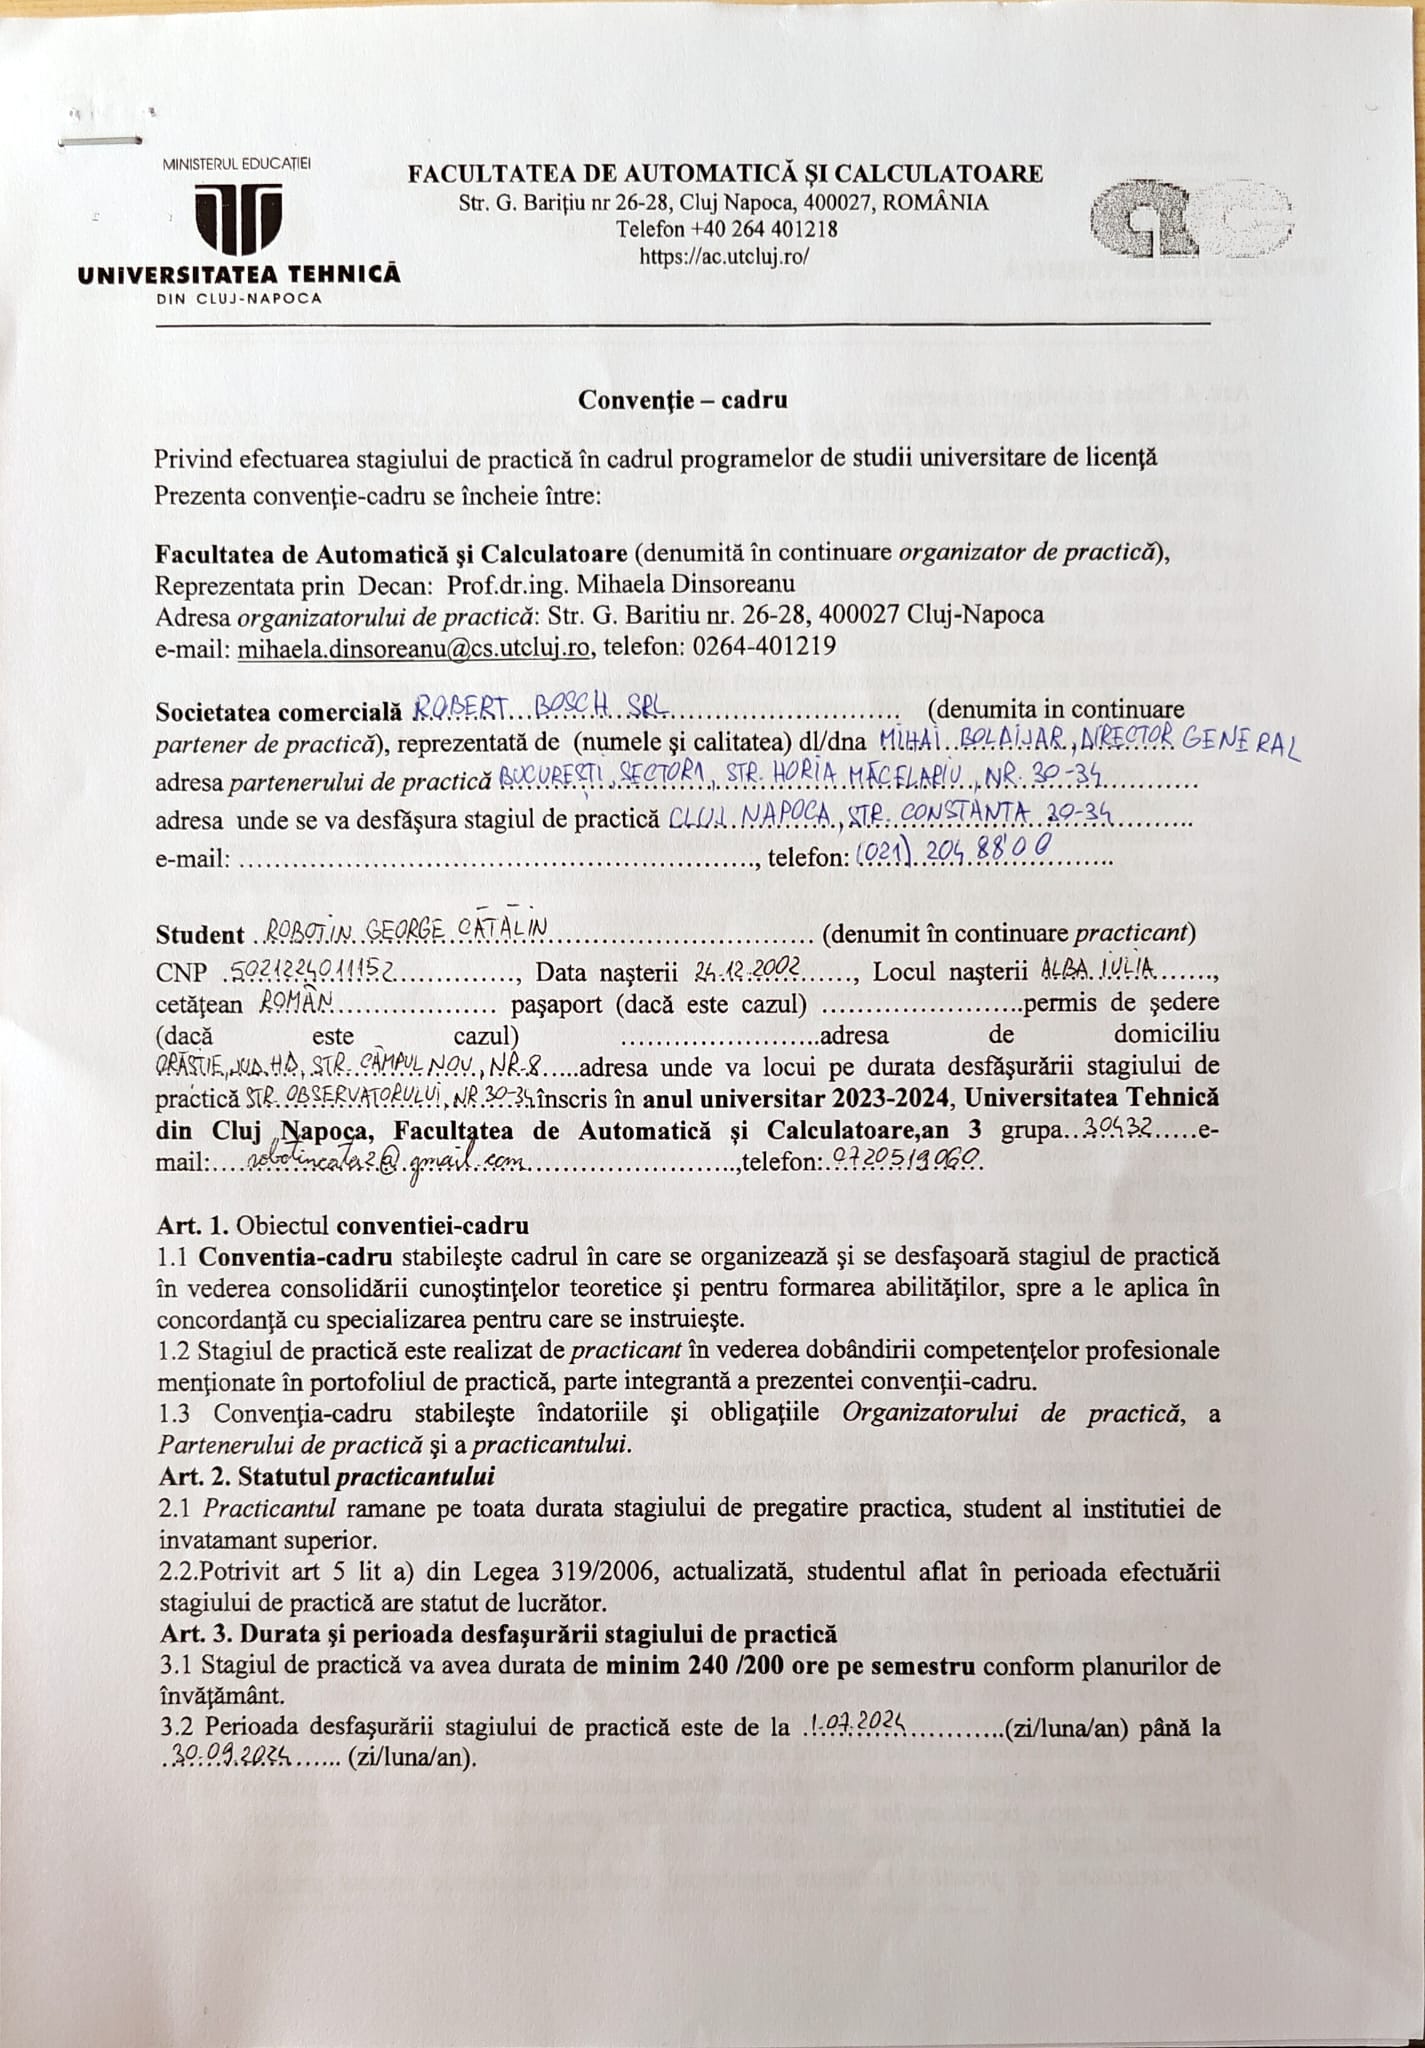 MINISTERUL EDUCAȚIEI
UNIVERSITATEA TEHNICĂ
DIN CLUJ-NAPOCA
FACULTATEA DE AUTOMATICĂ ȘI CALCULATOARE
Str. G. Barițiu nr 26-28, Cluj Napoca, 400027, ROMÂNIA
Telefon +40 264 401218
https://ac.utcluj.ro/
Convenţie – cadru
Privind efectuarea stagiului de practică în cadrul programelor de studii universitare de licenţă
Prezenta convenţie-cadru se încheie între:
Facultatea de Automatică şi Calculatoare (denumită în continuare organizator de practică),
Reprezentata prin Decan: Prof.dr.ing. Mihaela Dinsoreanu
Adresa organizatorului de practică: Str. G. Baritiu nr. 26-28, 400027 Cluj-Napoca
e-mail: mihaela.dinsoreanu@cs.utcluj.ro, telefon: 0264-401219
Societatea comercială ROBERT BOSCH SRL (denumita in continuare
partener de practică), reprezentată de (numele şi calitatea) dl/dna MIHAI BOLDIJAR, DIRECTOR GENERAL
adresa partenerului de practică BUCUREȘTI, SECTOR 1, STR. HORIA MĂCELARIU, NR. 30-34
adresa unde se va desfăşura stagiul de practică CLUJ NAPOCA, STR. CONSTANTA 30-34
e-mail: ..............................., telefon: (021) 204 8800
Student ROBOTIN GEORGE CĂTĂLIN (denumit în continuare practicant)
CNP 5021224011152, Data naşterii 24.12.2002, Locul naşterii ALBA IULIA,
cetăţean ROMÂN paşaport (dacă este cazul) ......................permis de şedere
(dacă este cazul) ......................adresa de domiciliu
ORĂȘTIE, JUD. HD, STR. CÂMPUL NOU, NR. 8 adresa unde va locui pe durata desfăşurării stagiului de
practică STR. OBSERVATORULUI, NR. 30-34 înscris în anul universitar 2023-2024, Universitatea Tehnică
din Cluj Napoca, Facultatea de Automatică şi Calculatoare,an 3 grupa 30432 e-
mail: robotincata2@gmail.com,telefon: 0720519060.
Art. 1. Obiectul conventiei-cadru
1.1 Conventia-cadru stabileşte cadrul în care se organizează şi se desfaşoară stagiul de practică
în vederea consolidării cunoştinţelor teoretice şi pentru formarea abilităţilor, spre a le aplica în
concordanţă cu specializarea pentru care se instruieşte.
1.2 Stagiul de practică este realizat de practicant în vederea dobândirii competenţelor profesionale
menţionate în portofoliul de practică, parte integrantă a prezentei convenţii-cadru.
1.3 Convenţia-cadru stabileşte îndatoriile şi obligaţiile Organizatorului de practică, a
Partenerului de practică şi a practicantului.
Art. 2. Statutul practicantului
2.1 Practicantul ramane pe toata durata stagiului de pregatire practica, student al institutiei de
invatamant superior.
2.2.Potrivit art 5 lit a) din Legea 319/2006, actualizată, studentul aflat în perioada efectuării
stagiului de practică are statut de lucrător.
Art. 3. Durata şi perioada desfaşurării stagiului de practică
3.1 Stagiul de practică va avea durata de minim 240 /200 ore pe semestru conform planurilor de
învăţământ.
3.2 Perioada desfaşurării stagiului de practică este de la 1.07.2024 (zi/luna/an) până la
30.09.2024 (zi/luna/an).